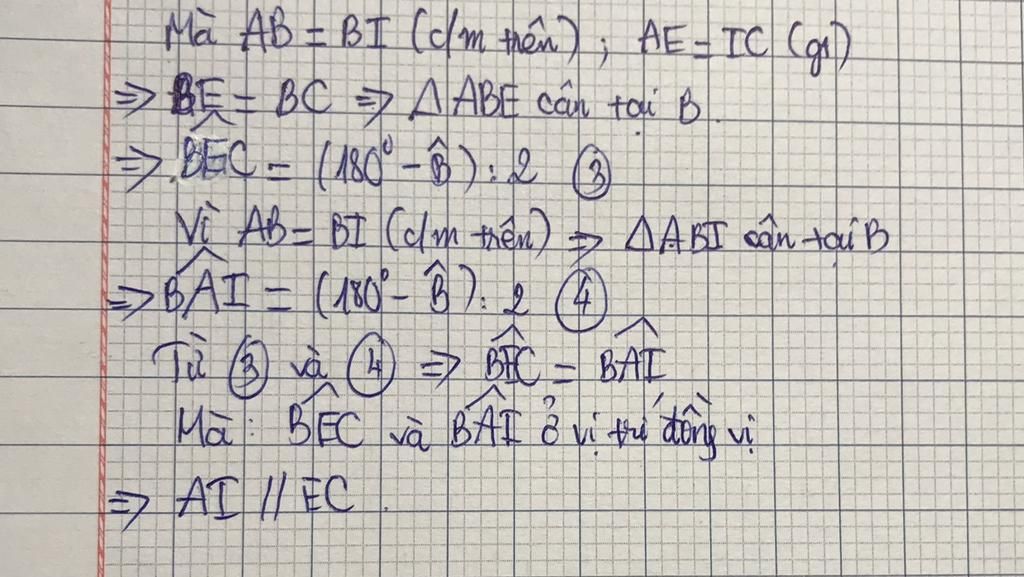 Mà AB = BI (c/m trên) ; AE = IC (gt)
=> BE = BC => Δ ABE cân tại B.
=> BEC = (180° - B̂) : 2 ③
Vì AB = BI (c/m trên) => Δ ABI cân tại B
=> BAI = (180° - B̂) : 2 ④
Từ ③ và ④ => BEC = BAI
Mà : BEC và BAI ở vị trí đồng vị
=> AI // EC.